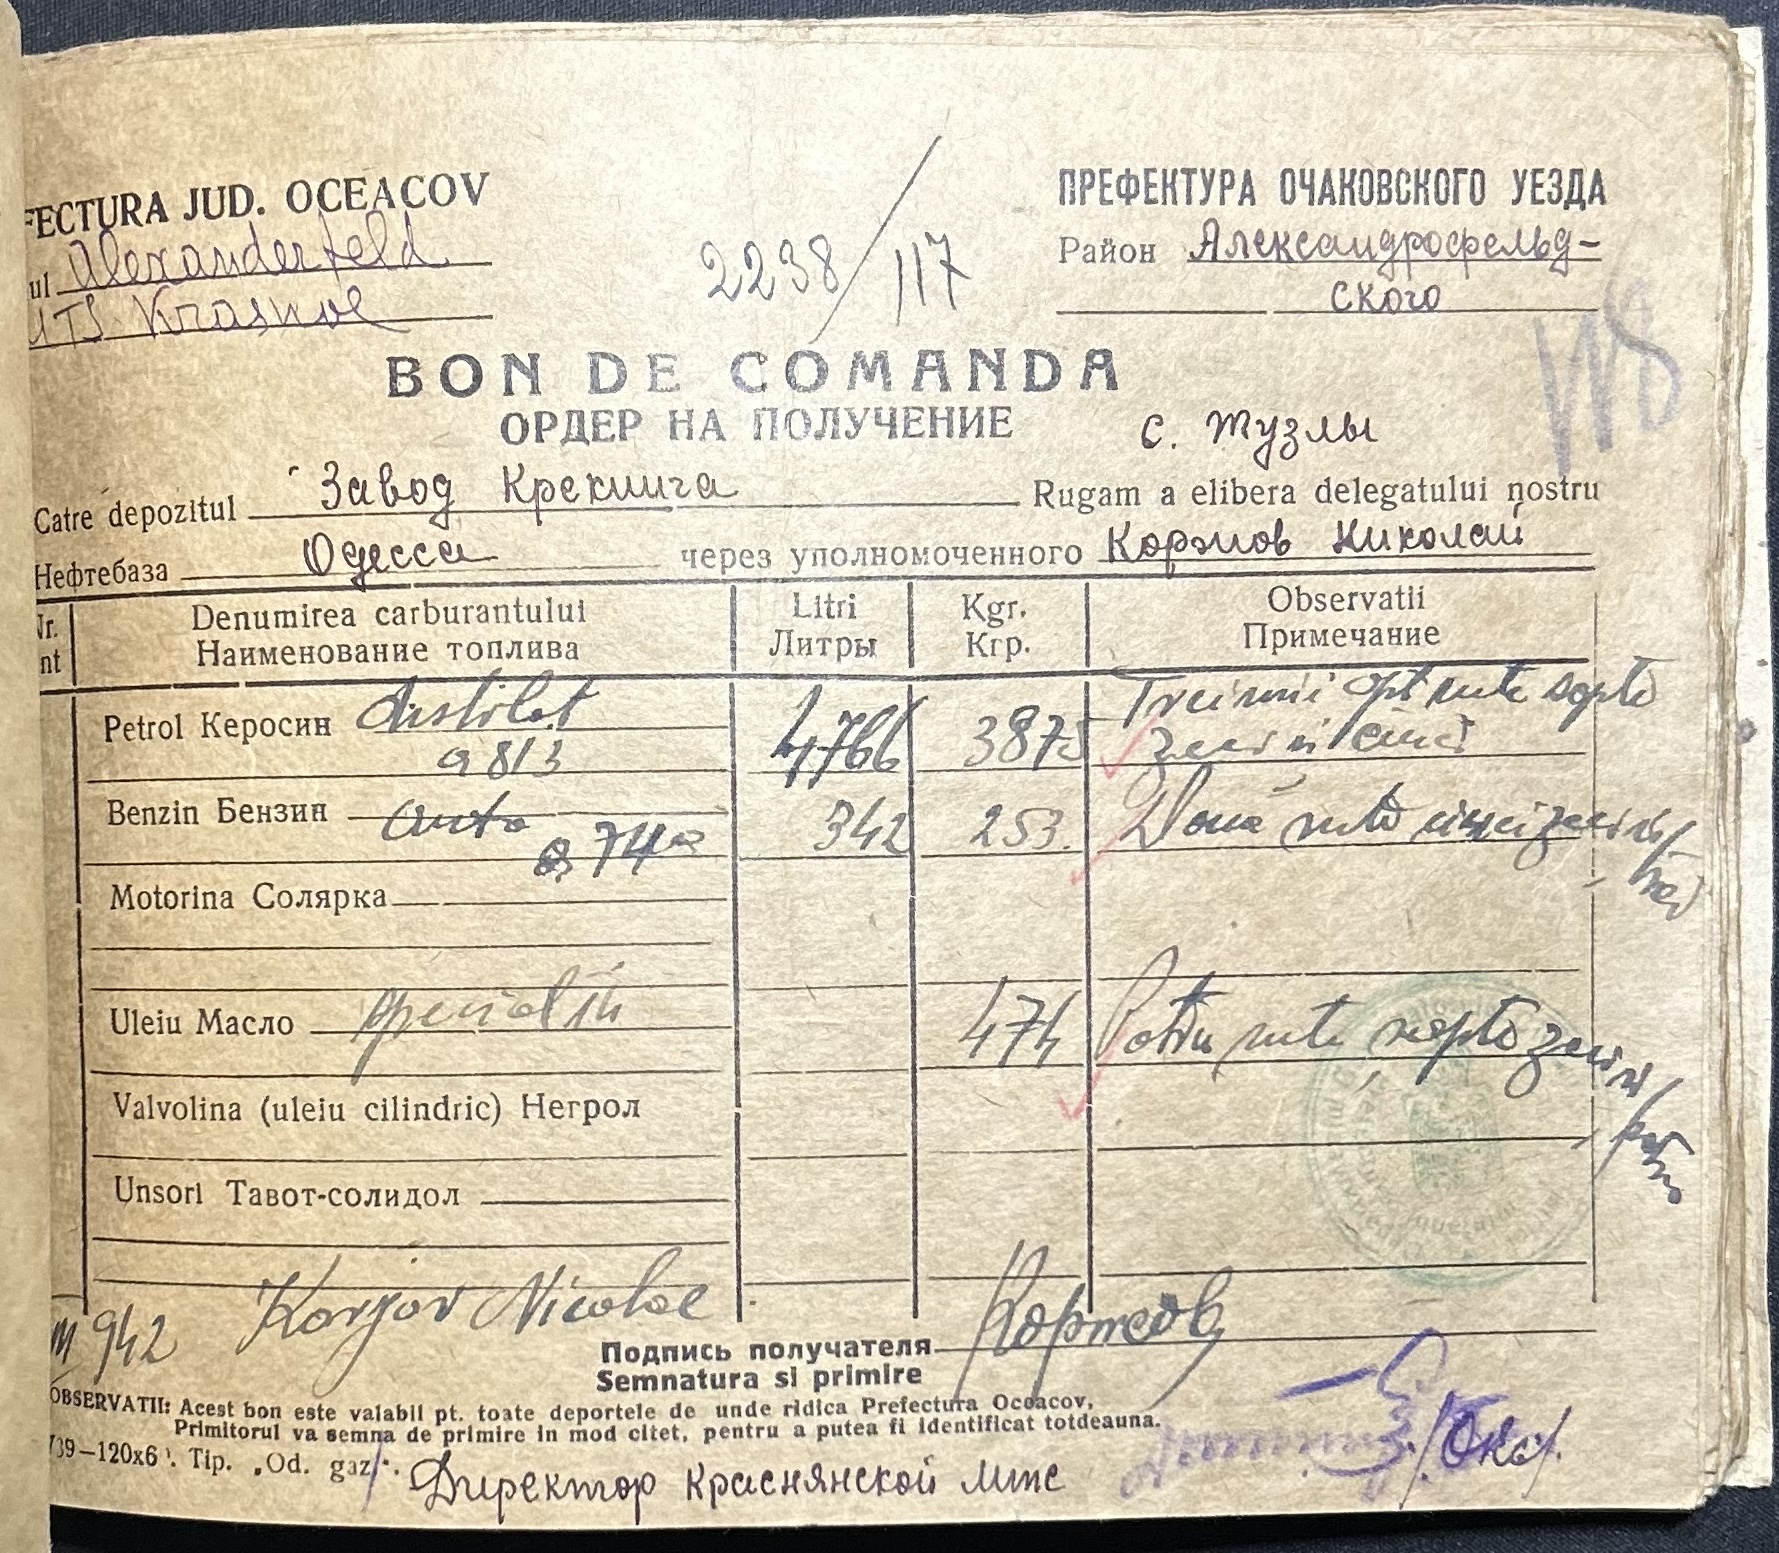 FECTURA JUD. OCEACOV
ПРЕФЕКТУРА ОЧАКОВСКОГО УЕЗДА
ul Alexanderfeld
2238/117
Район Александрофельд-
MTS. Krasnoe
ского
BON DE COMANDA
ОРДЕР НА ПОЛУЧЕНИЕ
с. Тузлы
Catre depozitul Завод Крекинга Rugam a elibera delegatului nostru
Нефтебаза Одесса через уполномоченного Коржов Николай
Nr. Denumirea carburantului Litri Kgr. Observatii
nt Наименование топлива Литры Кгр. Примечание
Petrol Керосин distilat 4766 3875 Trei mii opt sute șapte
a 813 zeci și cinci
Benzin Бензин auto 342 253. Două sute cinci zeci și/
a 740 trei
Motorina Солярка
Uleiu Масло special 474 Patru sute șapte zeci și/
Valvolina (uleiu cilindric) Негрол patru
Unsori Тавот-солидол
942 Korjov Nicolae Коржов
Подпись получателя
Semnatura si primire
OBSERVATII: Acest bon este valabil pt. toate deportele de unde ridica Prefectura Oceacov,
Primitorul va semna de primire in mod citet, pentru a putea fi identificat totdeauna.
739—120x6 . Tip. „Od. gaz“.
Директор Краснянской мтс